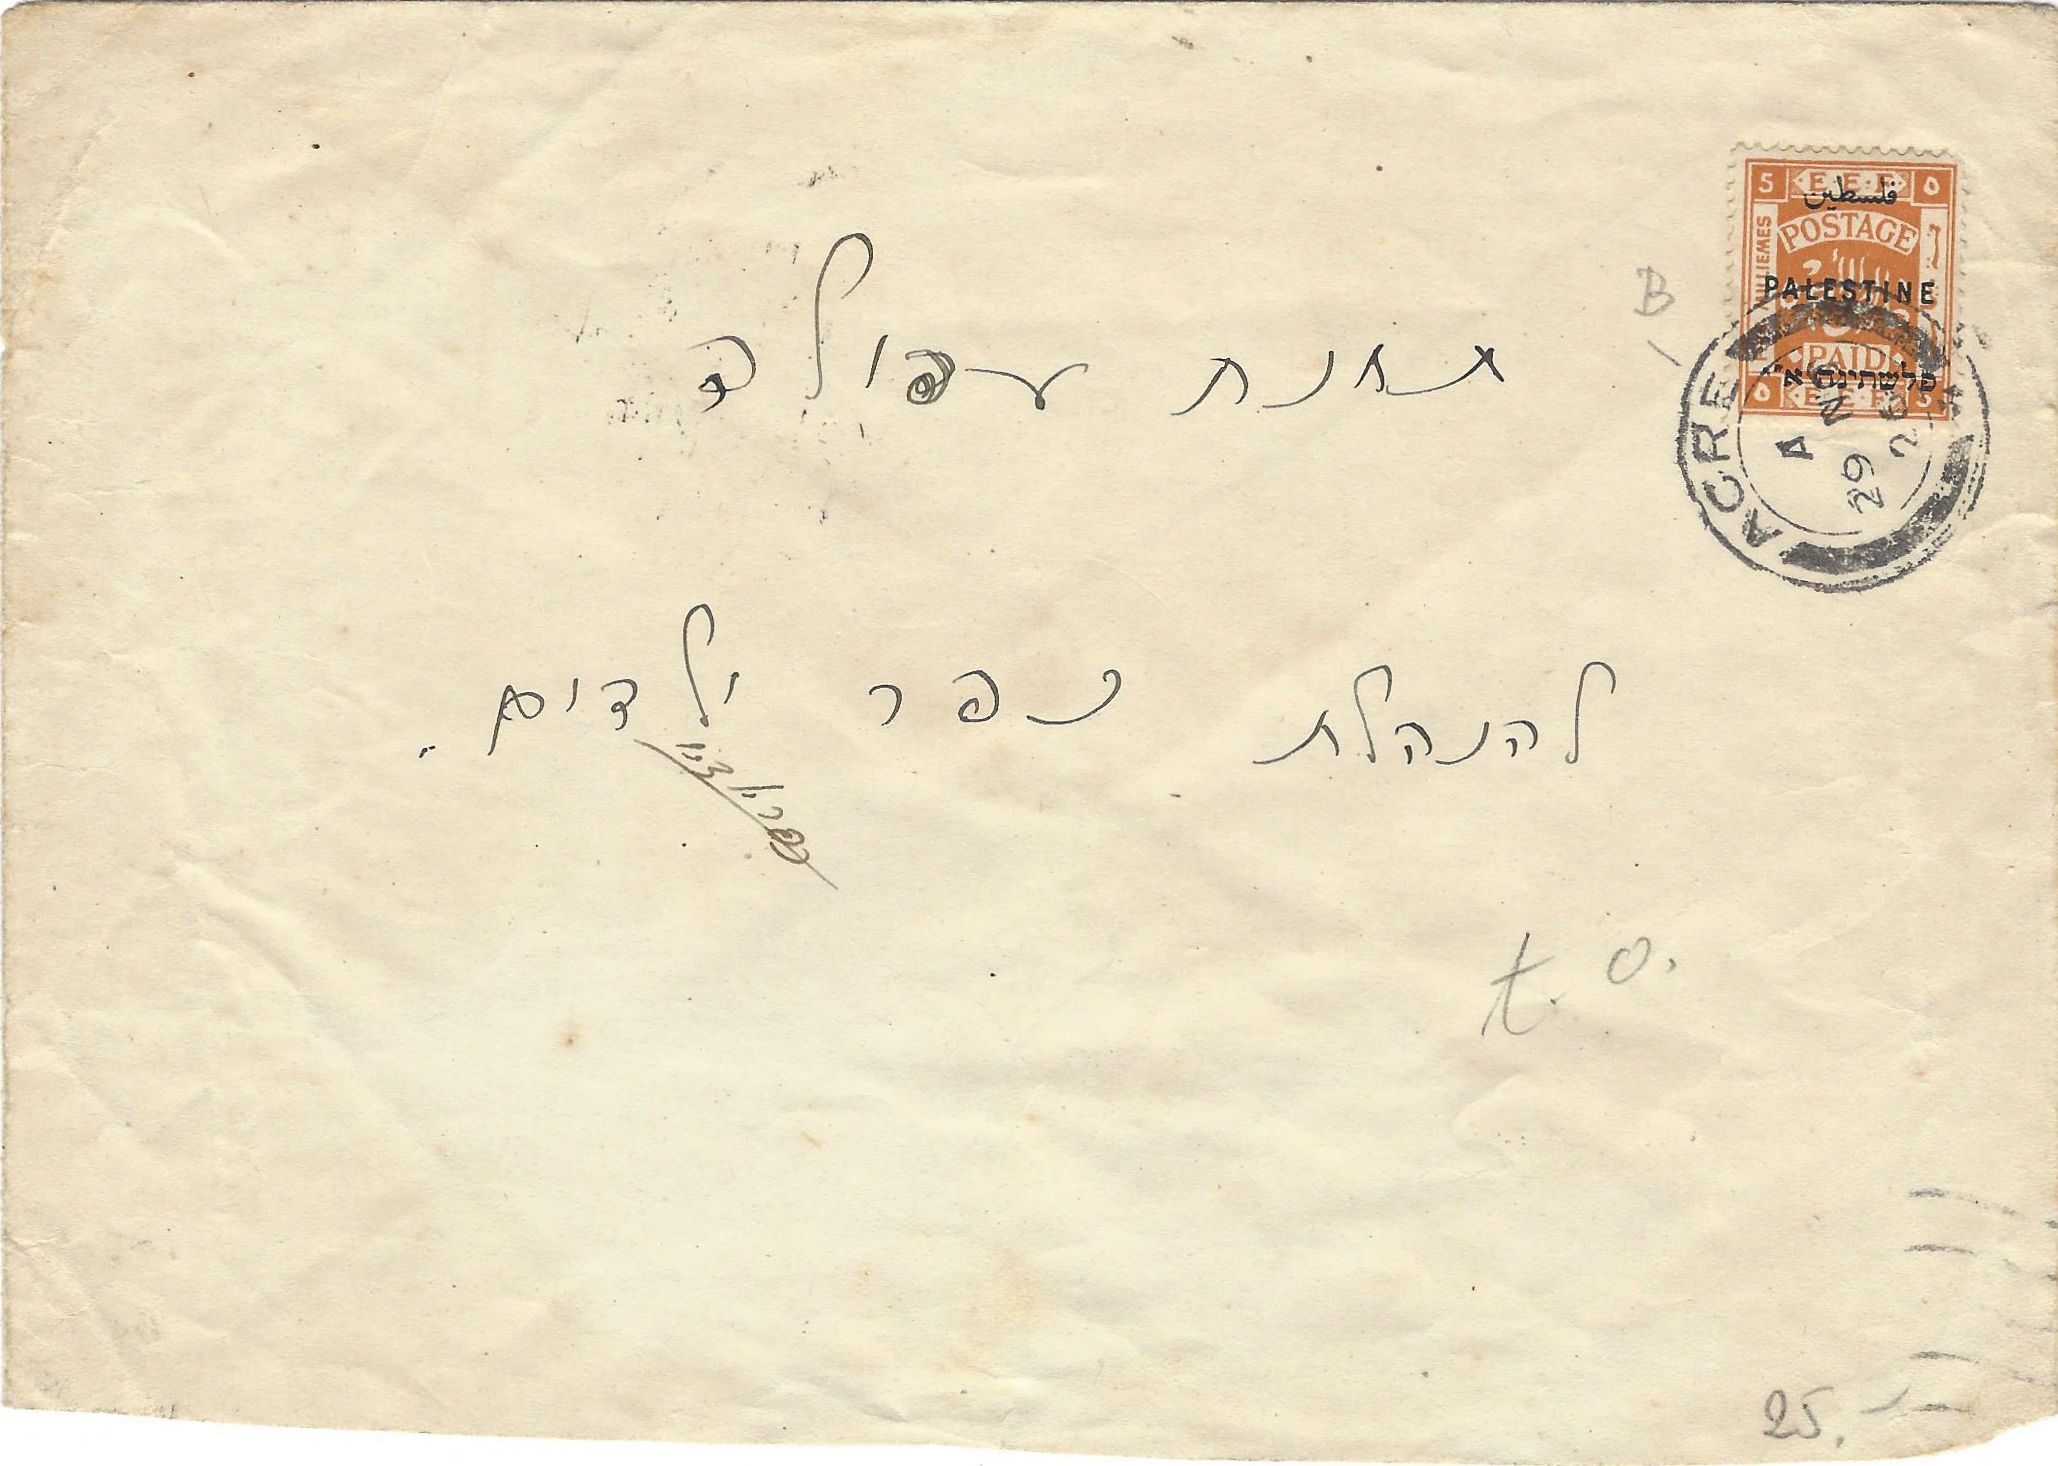 5 E.E.F. ٥
فلسطين
POSTAGE
MILLIEMES
PALESTINE
PAID
פלשתינה א״י
٥ E.E.F. 5
ACRE
A
29 NO
26
B
תחנת עפולה
להנהלת כפר ילדים.
t. o.
25.-